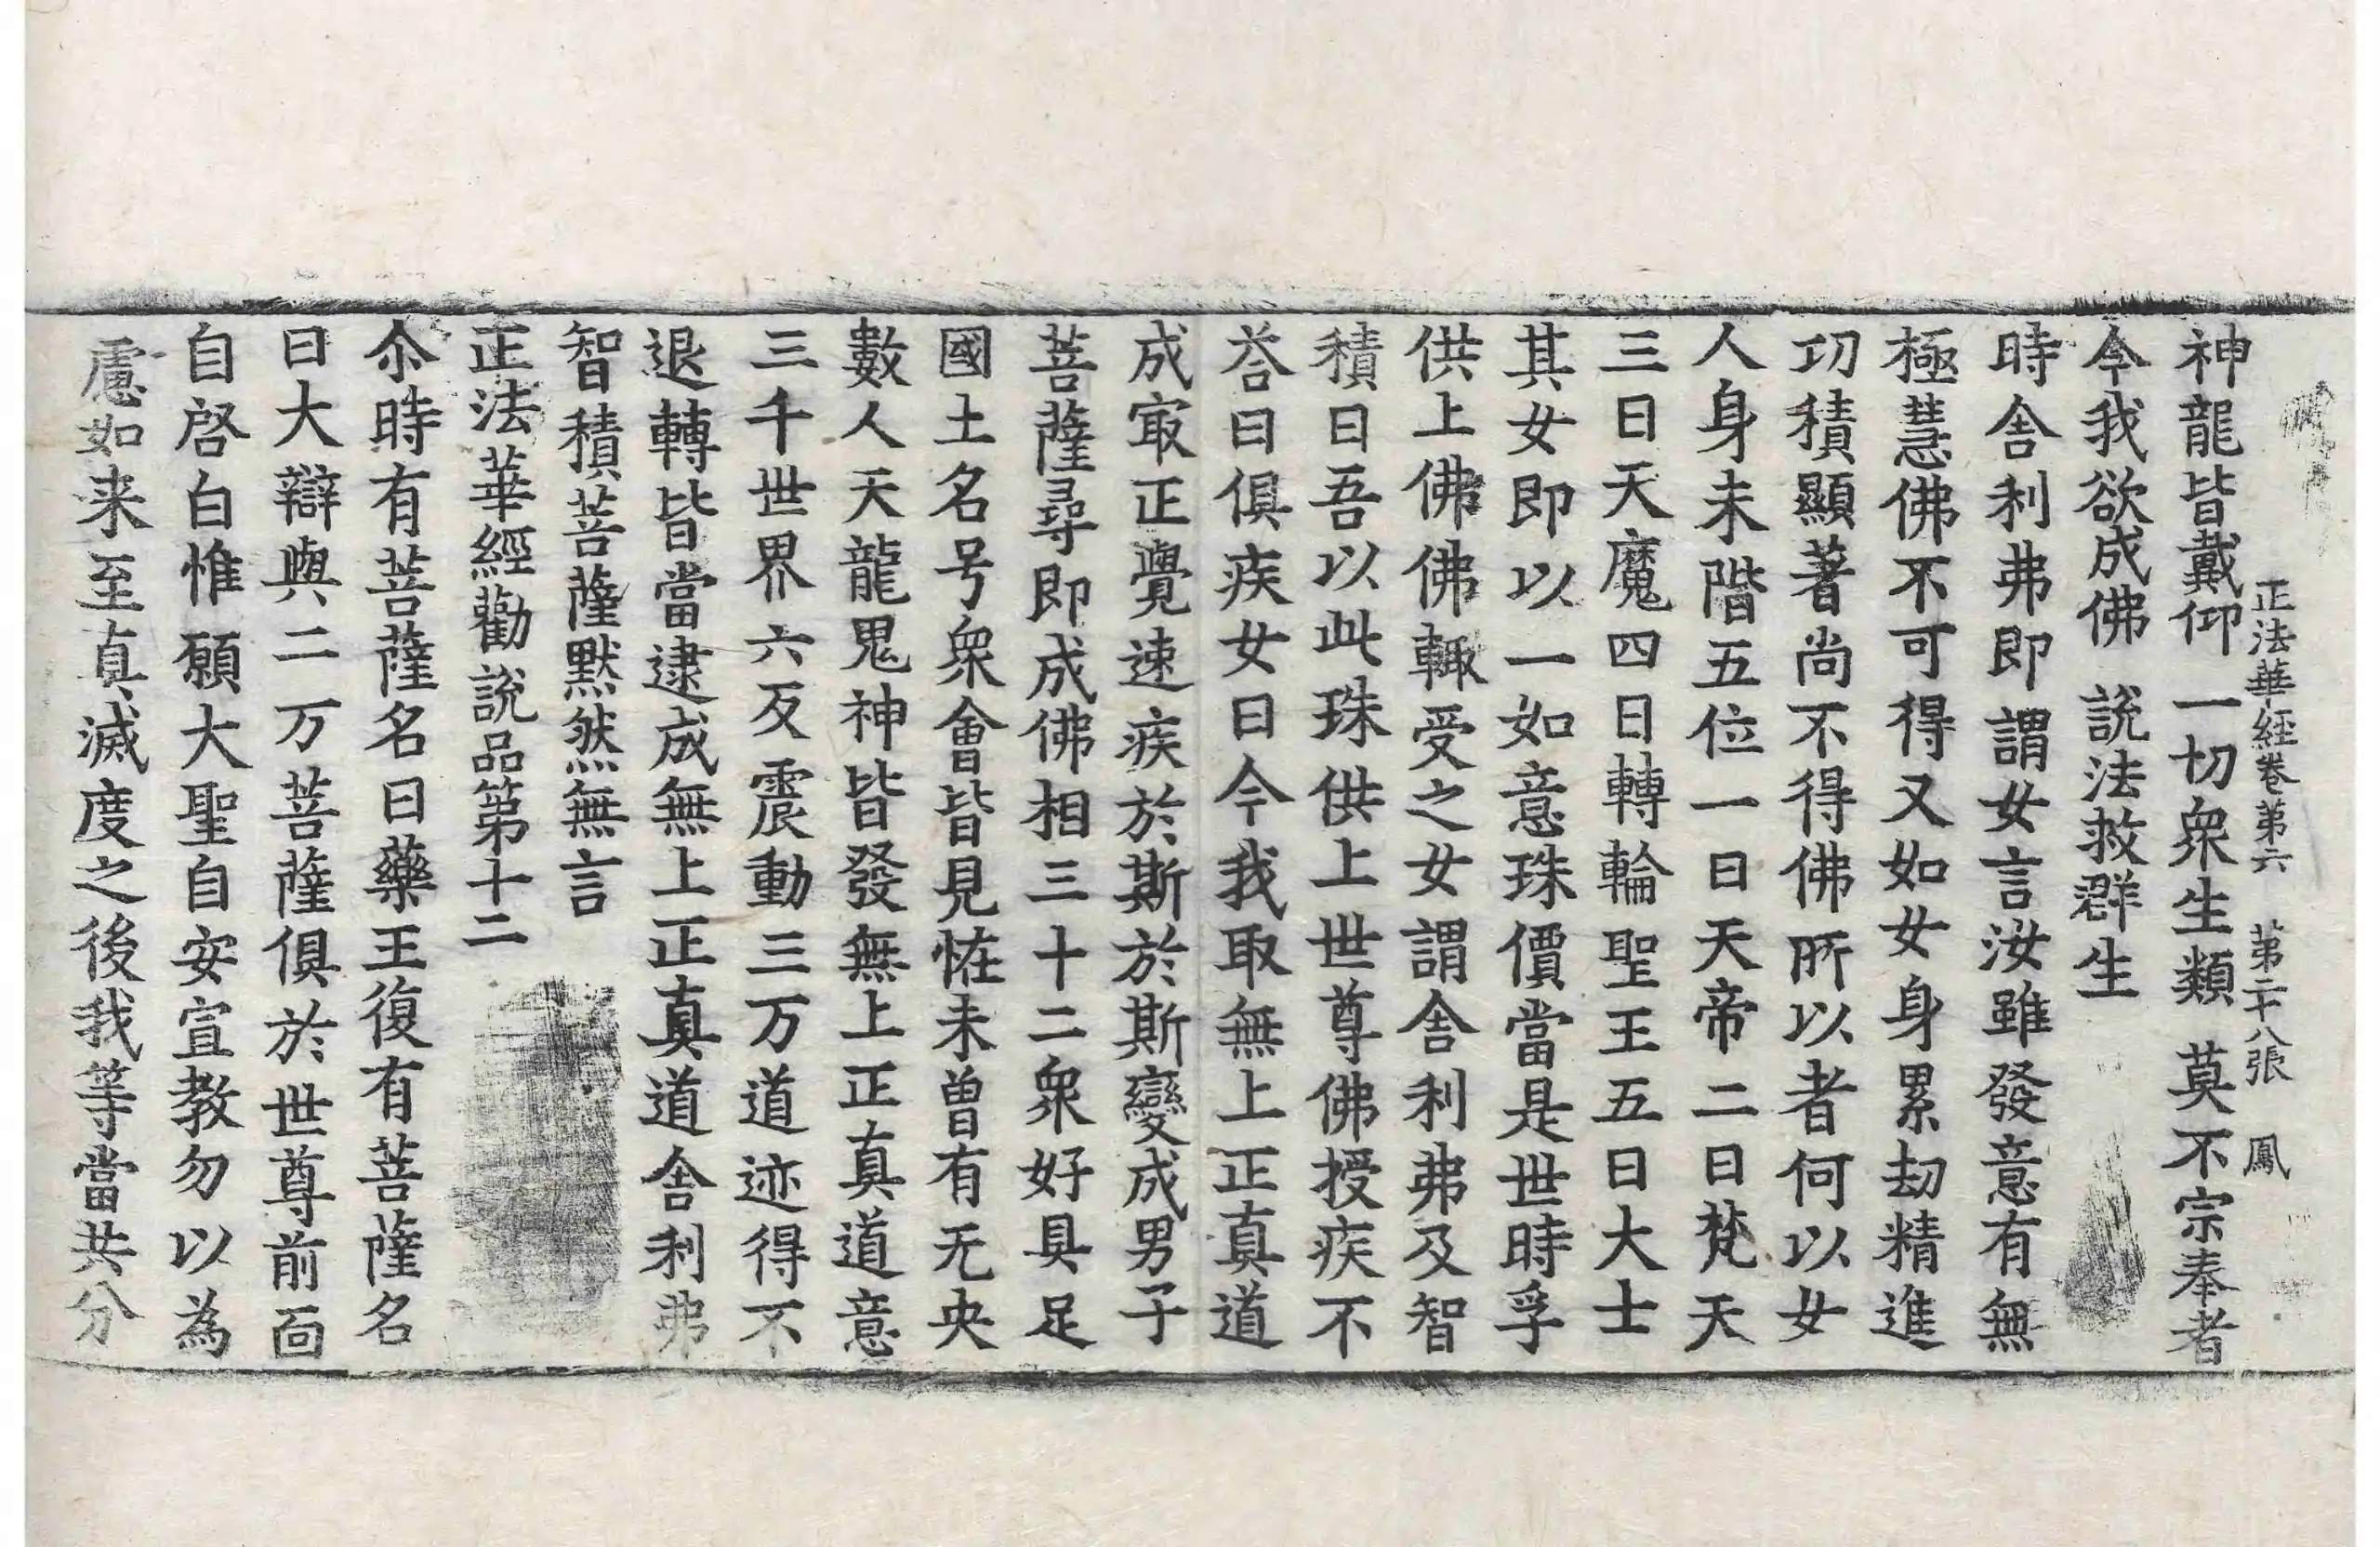 正法華経卷第六　第二十八張　鳳
神龍皆戴仰　一切衆生類　莫不宗奉者
今我欲成佛　說法救群生
時舍利弗即謂女言汝雖發意有無
極慧佛不可得又如女身累劫精進
功積顯著尚不得佛所以者何以女
人身未階五位一曰天帝二曰梵天
三曰天魔四曰轉輪聖王五曰大士
其女即以一如意珠價當是世時孚
供上佛佛輙受之女謂舍利弗及智
積曰吾以此珠供上世尊佛授疾不
荅曰俱疾女曰今我取無上正真道
成㝡正覺速疾於斯於斯變成男子
菩薩尋即成佛相三十二衆好具足
國土名号衆會皆見恠未曾有无央
數人天龍鬼神皆發無上正真道意
三千世界六反震動三万道迹得不
退轉皆當逮成無上正真道舍利弗
智積菩薩默然無言
正法華經勸說品第十二
尒時有菩薩名曰藥王復有菩薩名
曰大辯與二万菩薩俱於世尊前面
自啓白惟願大聖自安宣教勿以為
慮如来至真滅度之後我等當共分